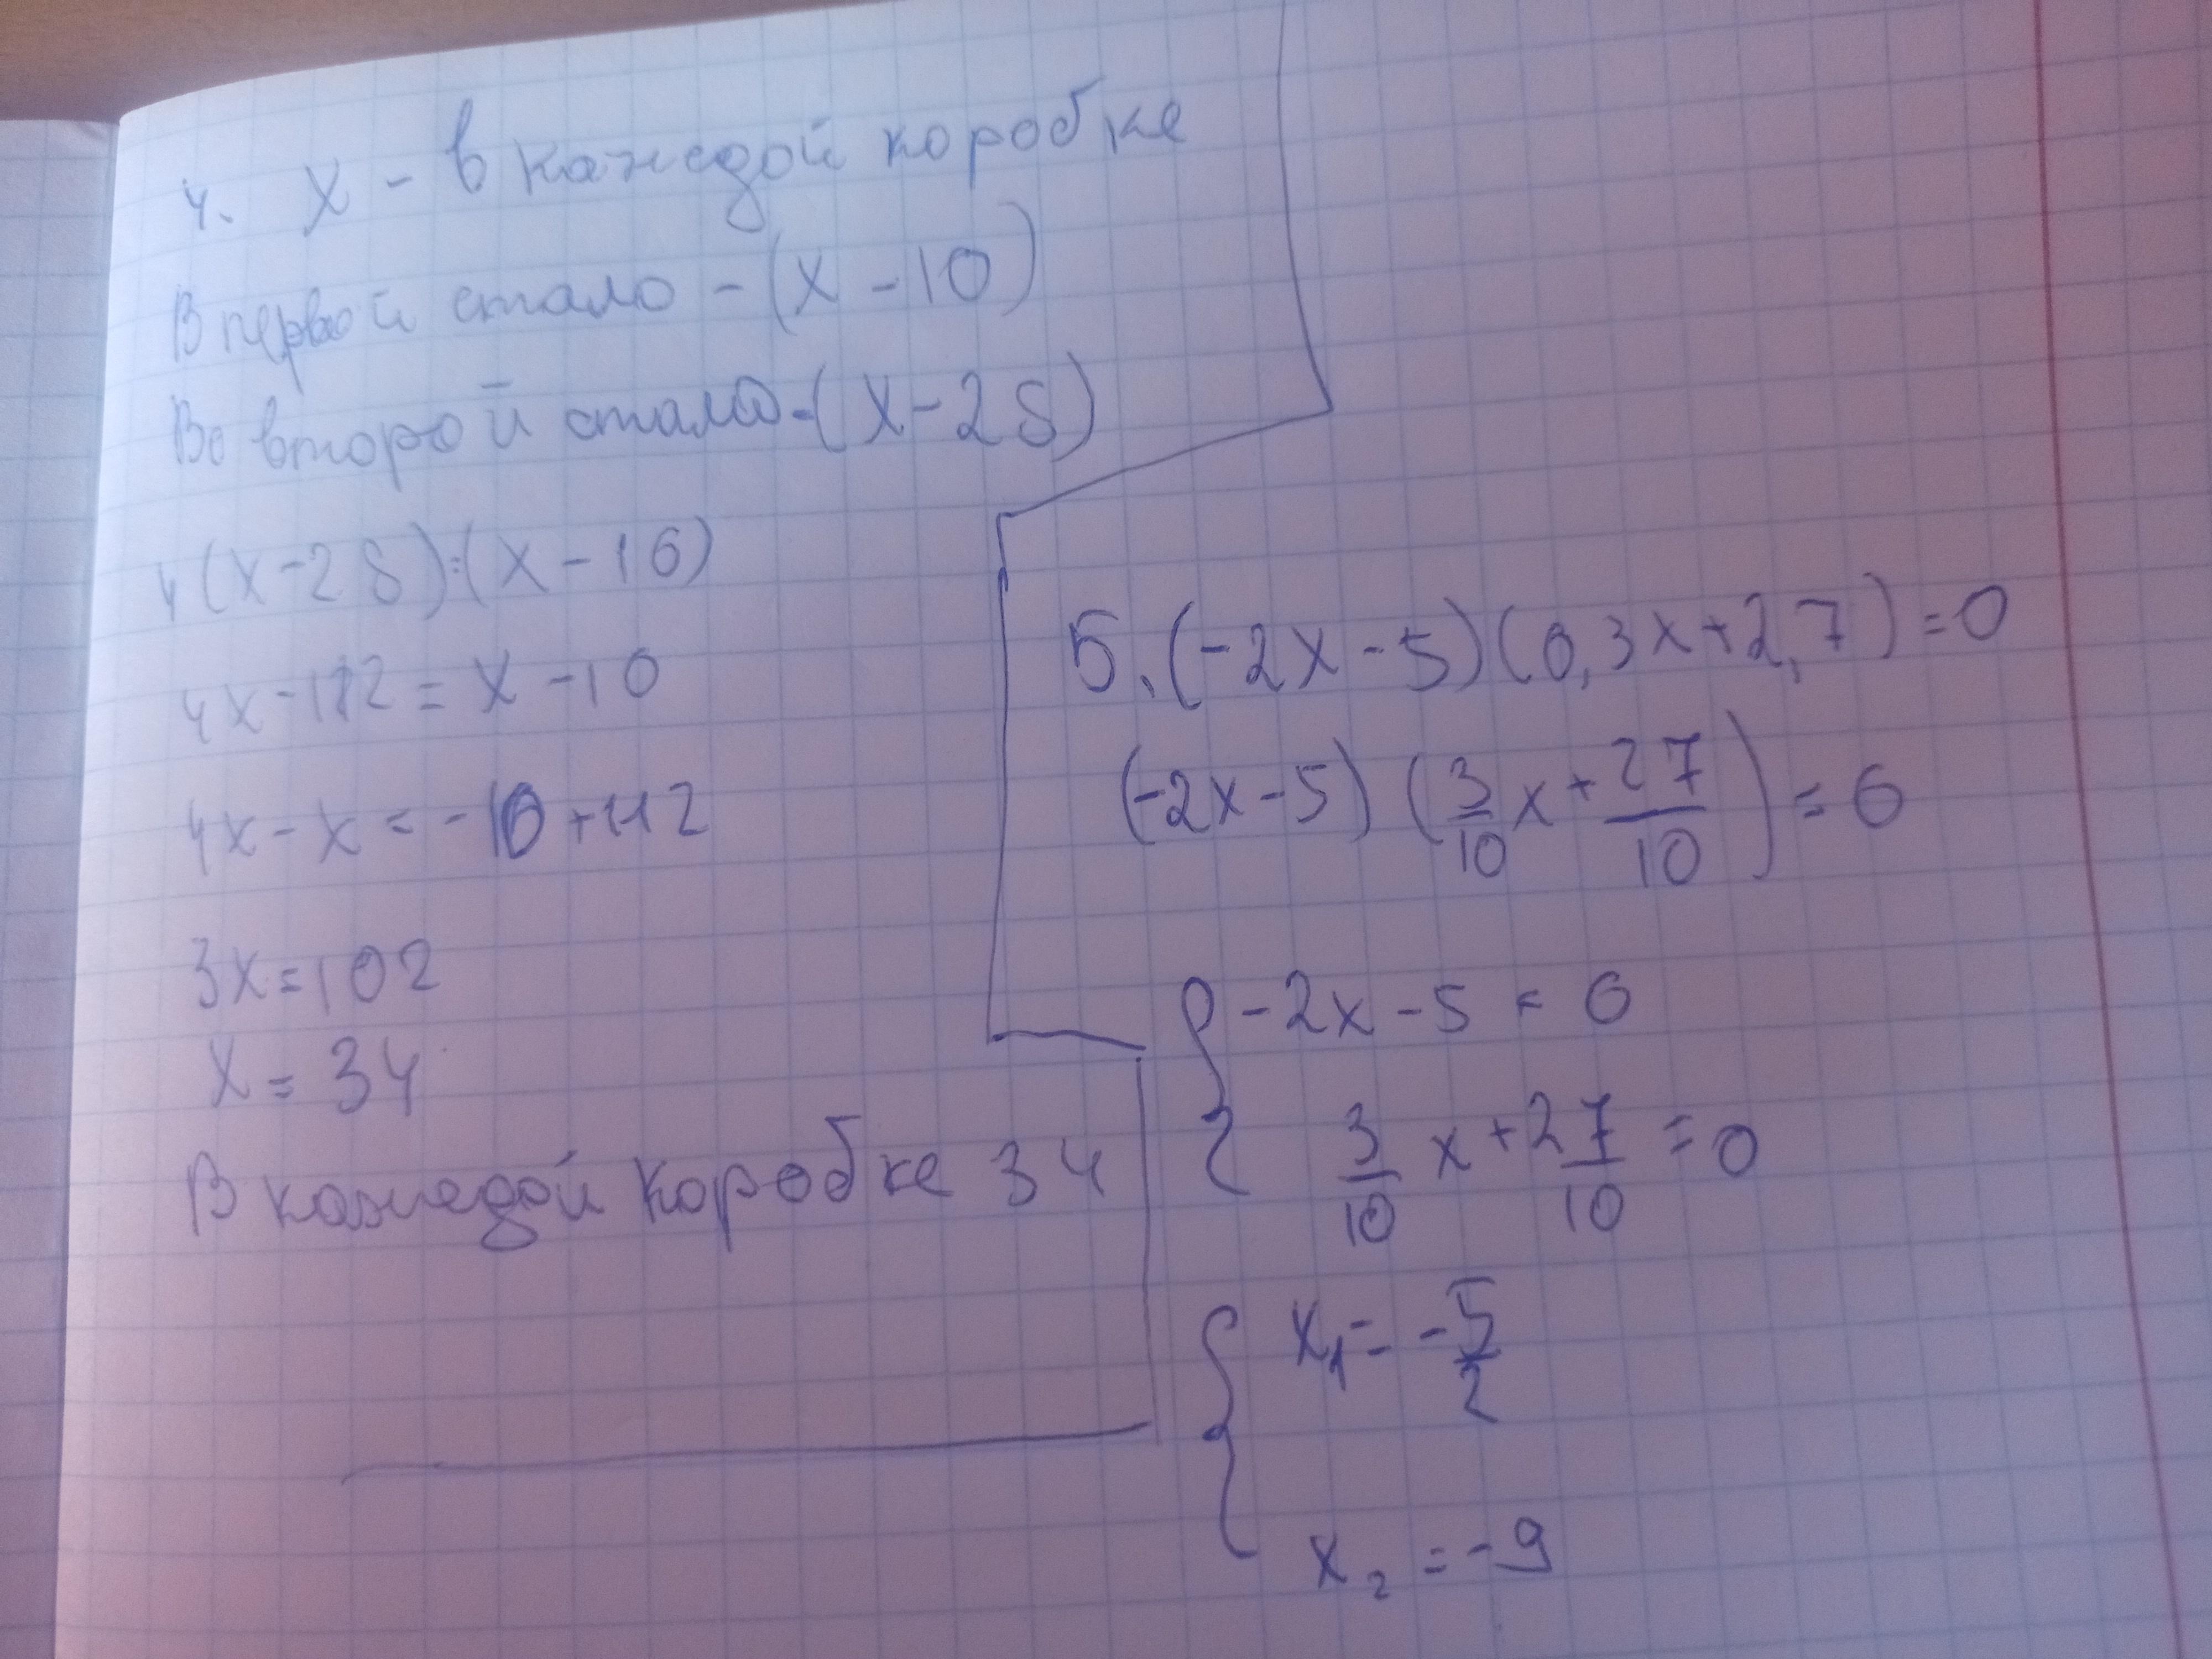 4. x - в каждой коробке
В первой стало - (x - 10)
Во второй стало - (x - 28)
4(x - 28) = (x - 10)
4x - 112 = x - 10
4x - x = -10 + 112
3x = 102
x = 34
В каждой коробке 34
5. (-2x - 5)(0,3x + 2,7) = 0
(-2x - 5)(3/10 x + 27/10) = 0
{ -2x - 5 = 0
3/10 x + 27/10 = 0
{ x₁ = -5/2
x₂ = -9